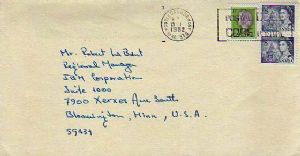 1982
POST
CODE
Mr. Robert Le Bent
Regional Manager
IBM Corporation
Suite 1000
7900 Xerxes Ave South
Bloomington, Minn, U.S.A.
55431